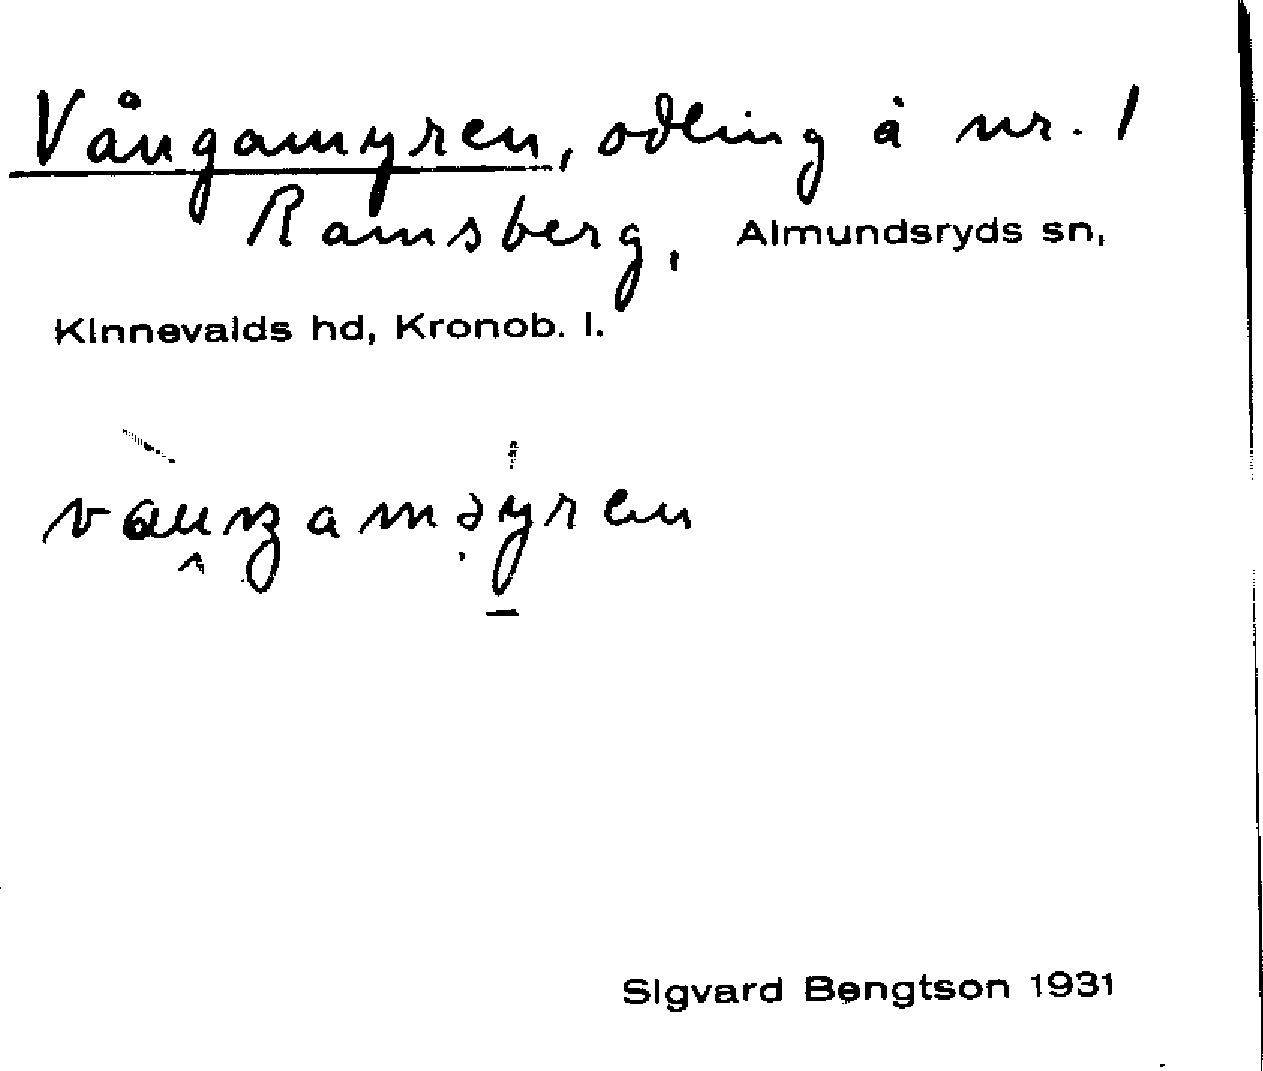 Vångamyren, odling å nr. 1
Ramsberg, Almundsryds sn,
Kinnevalds hd, Kronob. l.
Sigvard Bengtson 1931